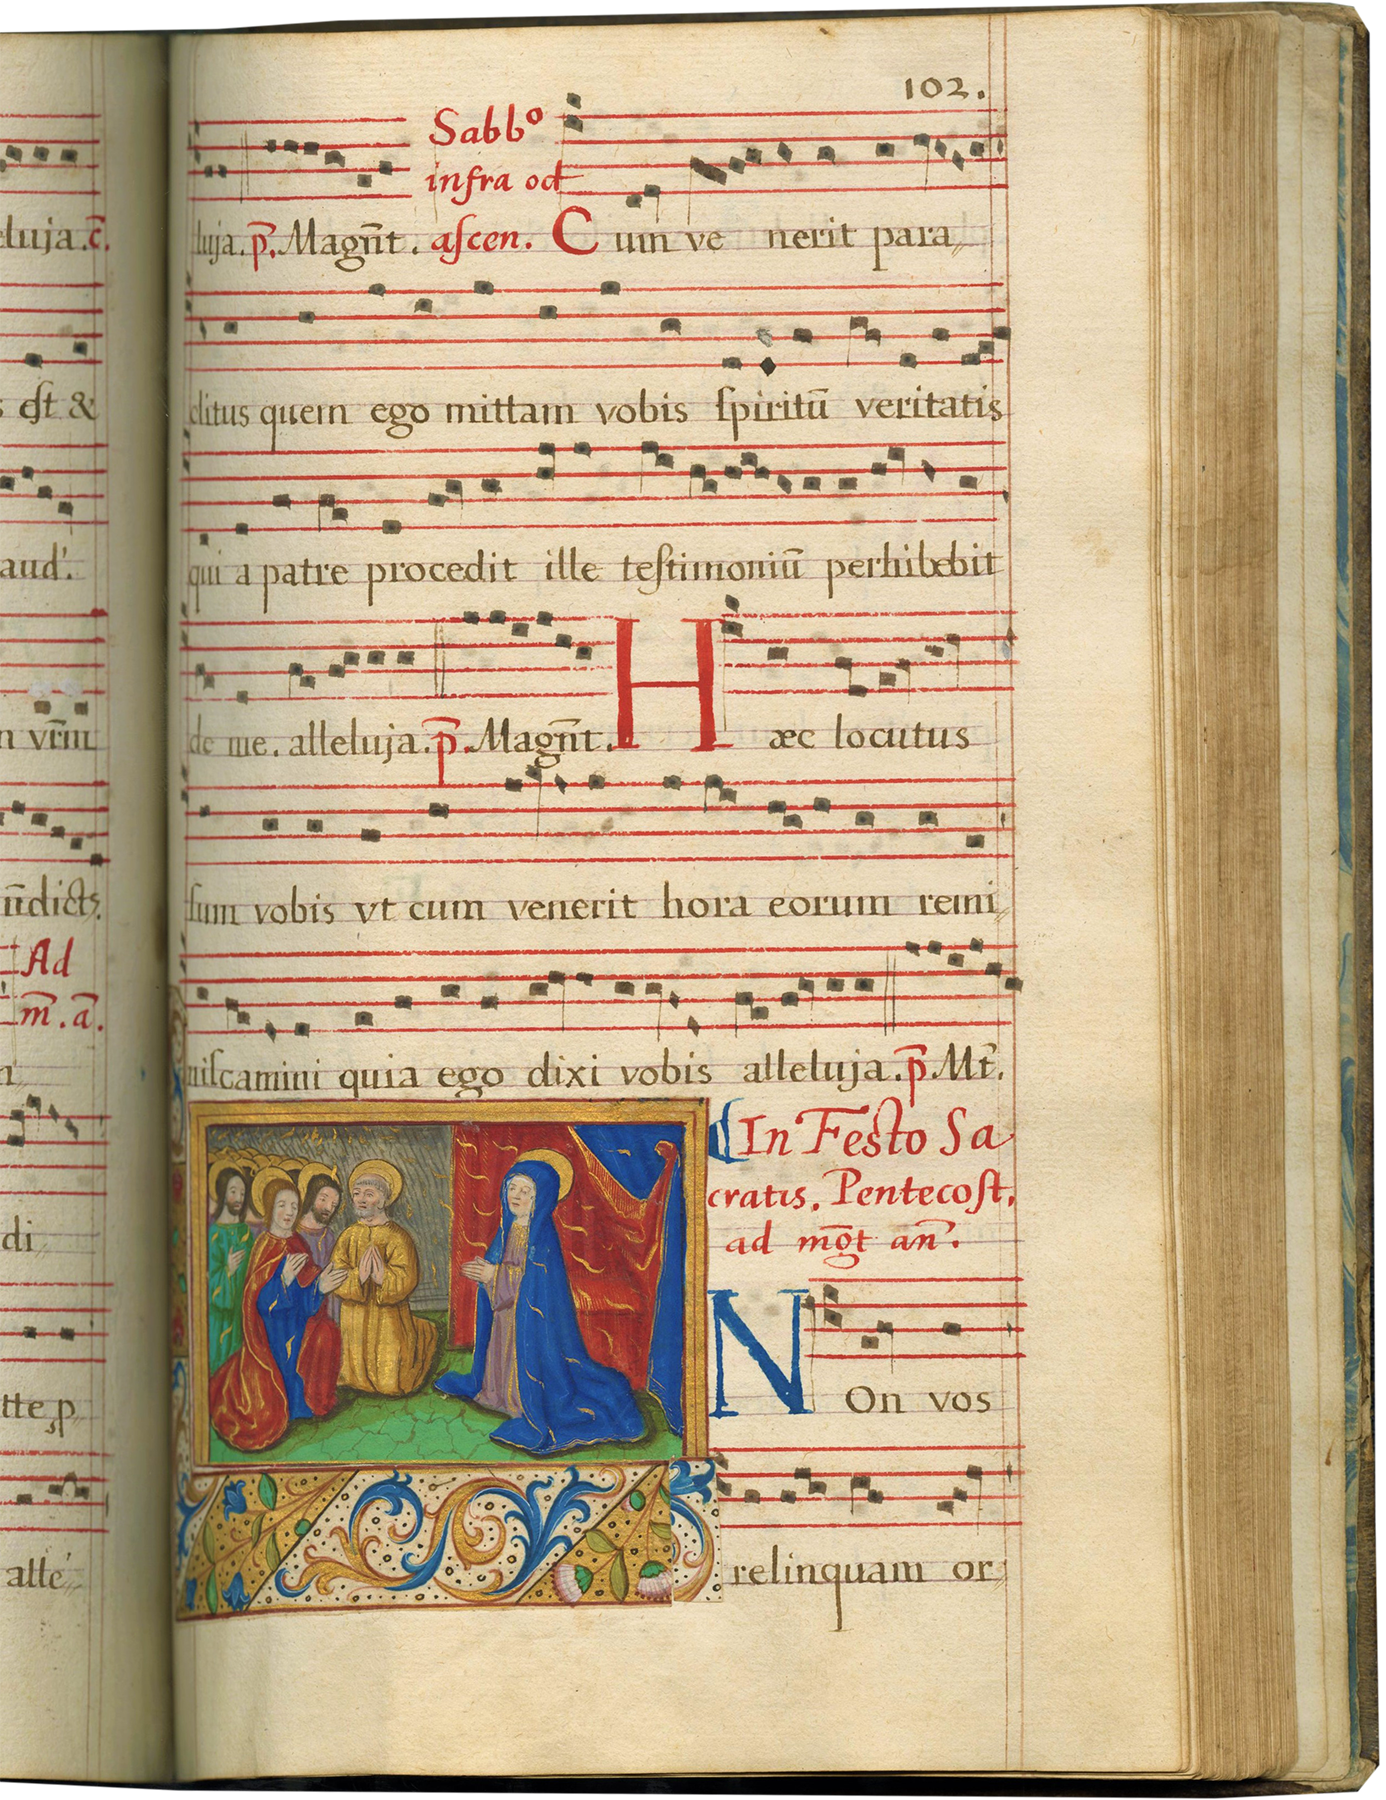 102.
Sabbº
infra oct
luja. p̄. Magn̄t. aſcen. Cum ve nerit para
clitus quem ego mittam vobis ſpiritū veritatis
qui a patre procedit ille teſtimoniū perhibebit
de me. alleluja. p̄. Magn̄t. Hæc locutus
ſum vobis vt cum venerit hora eorum remi
niſcamini quia ego dixi vobis alleluja. p̄ Mt̄.
In Feſto Sa
cratis. Pentecoſt.
ad mḡt an̄.
NOn vos
relinquam or
eluja. c̄.
est &
aud'.
n vr̄m
Ad
m̄. ā.
di
alle'